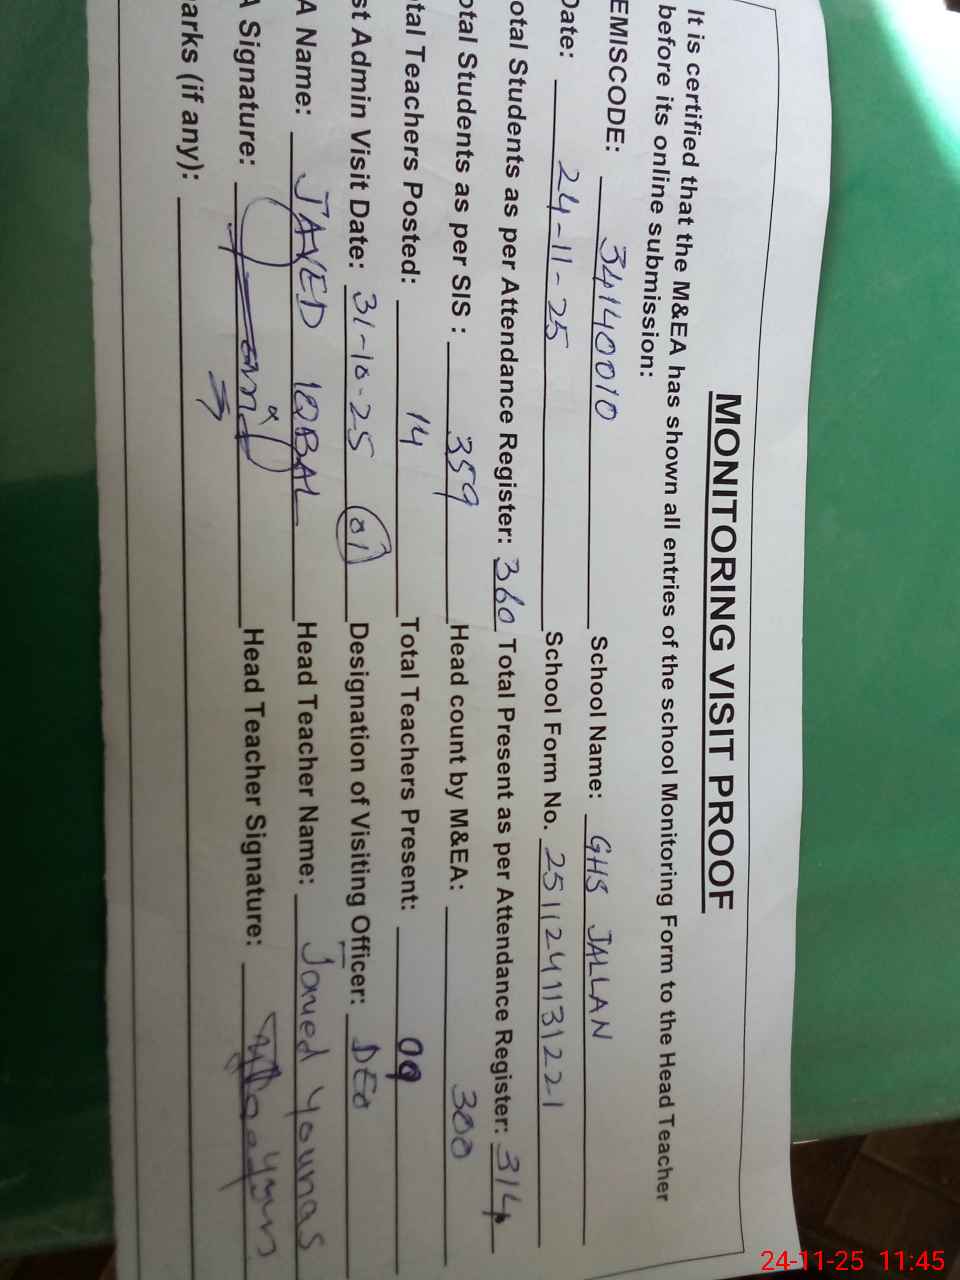 MONITORING VISIT PROOF
It is certified that the M&EA has shown all entries of the school Monitoring Form to the Head Teacher
before its online submission:
EMISCODE: 34140010 School Name: GHS JALLAN
Date: 24-11-25 School Form No. 251124113122-1
otal Students as per Attendance Register: 360 Total Present as per Attendance Register: 314
otal Students as per SIS : 359 Head count by M&EA: 300
tal Teachers Posted: 14 Total Teachers Present: 09
st Admin Visit Date: 31-10-25 01 Designation of Visiting Officer: DEO
A Name: JAVED IQBAL Head Teacher Name: Javed Younas
A Signature: Head Teacher Signature:
arks (if any):
24-11-25 11:45